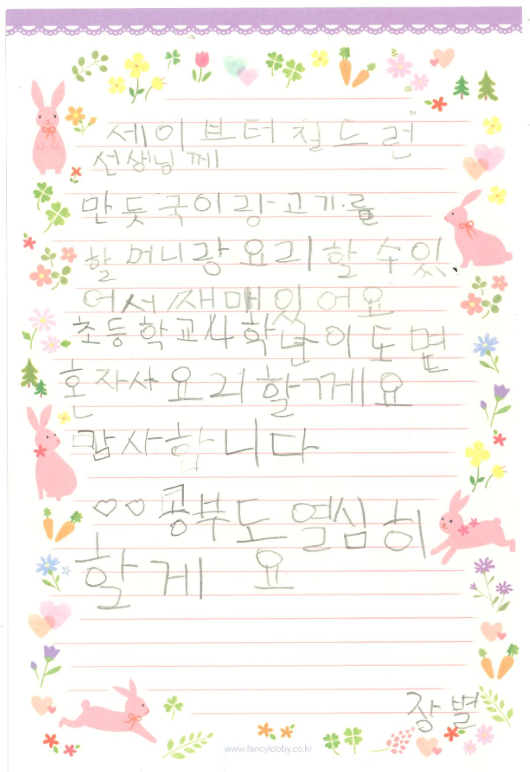 세이브더칠드런
선생님께
만듯국이랑고기를
할머니랑요리할수있
어서재매있어요
초등학교4학년이도면
혼자사요리할께요
감사합니다
♡♡공부도열심히
할게요
장별
www.fancylobby.co.kr